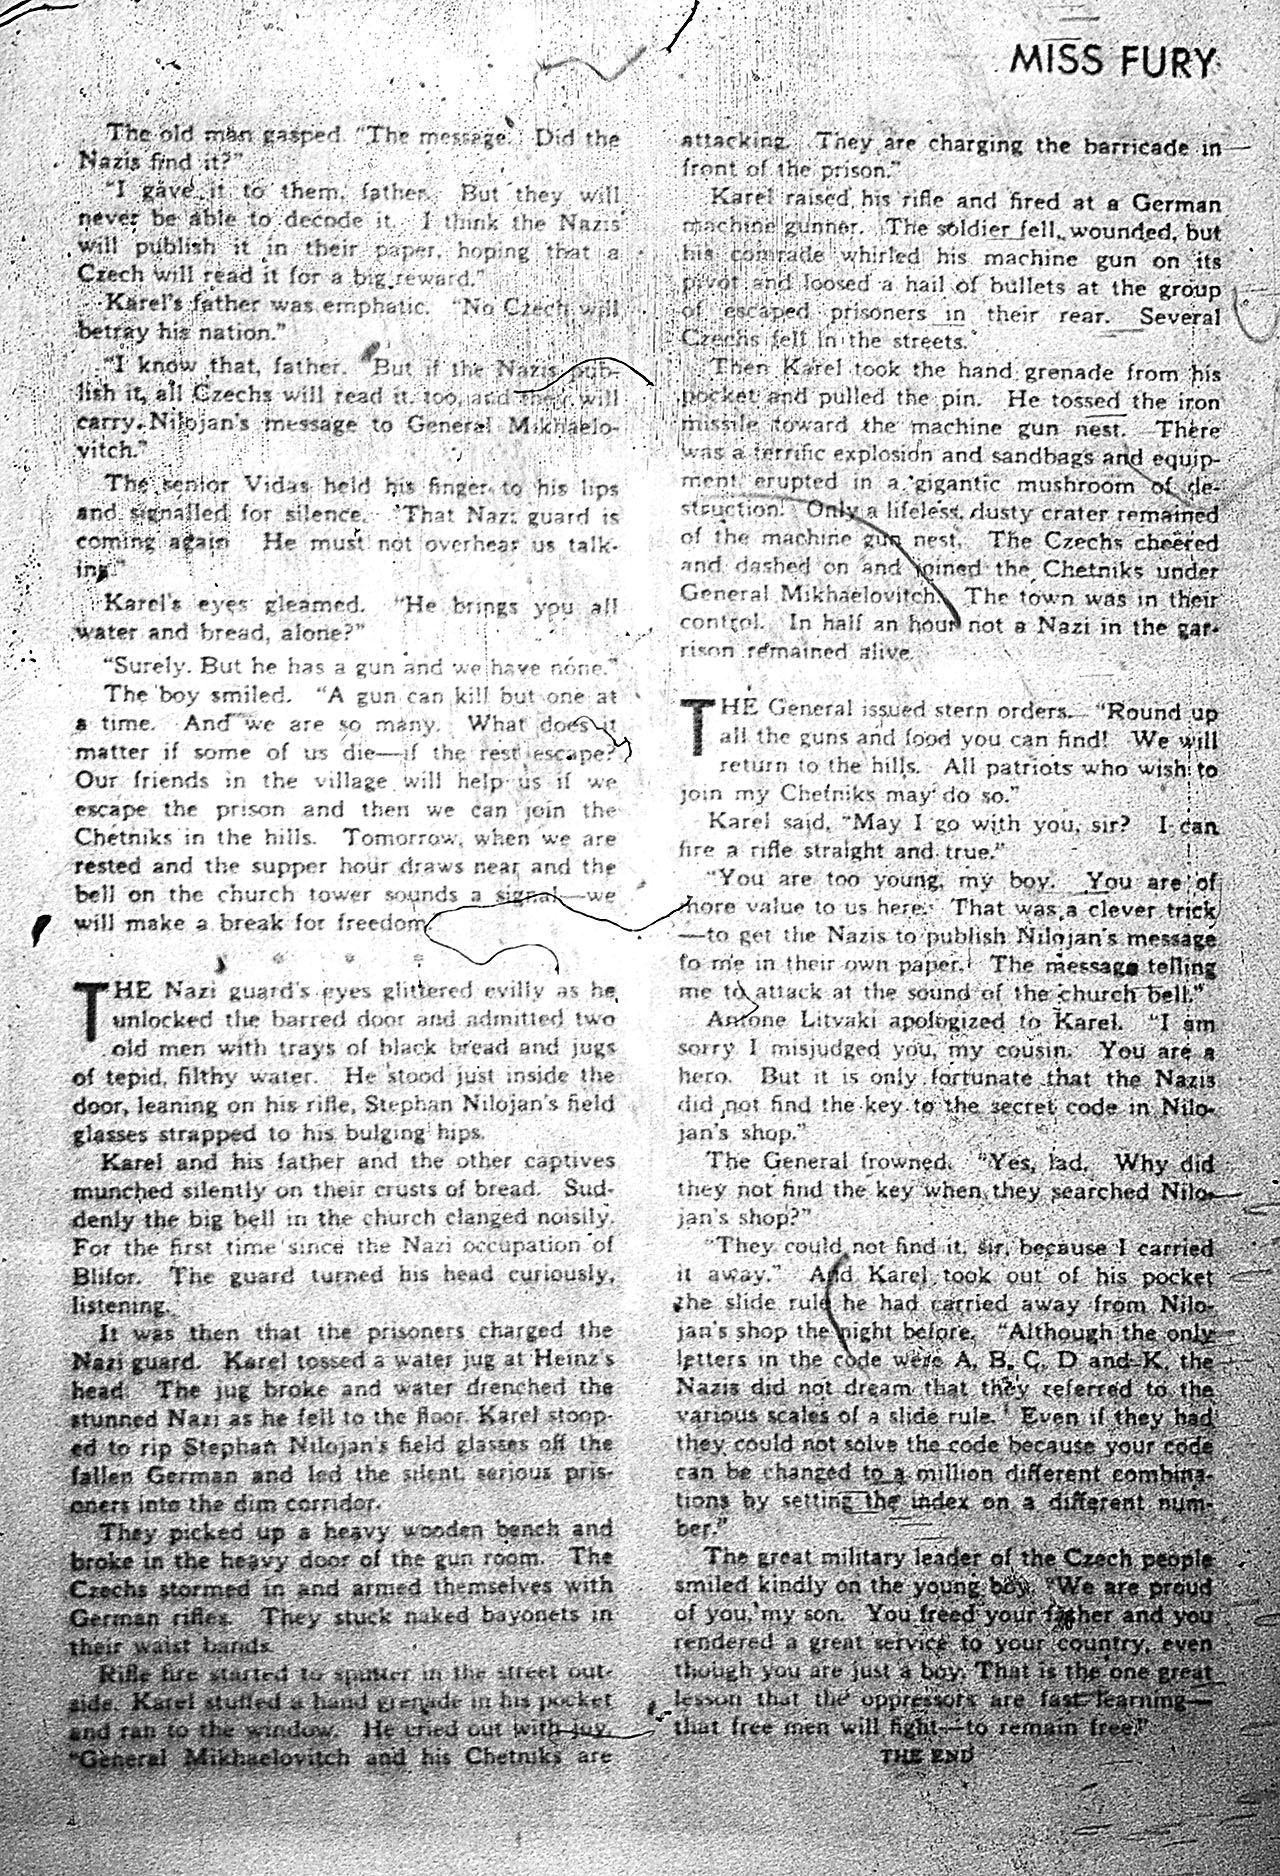 MISS FURY
The old man gasped. "The message. Did the
Nazis find it?"
"I gave it to them, father. But they will
never be able to decode it. I think the Nazis
will publish it in their paper, hoping that a
Czech will read it for a big reward."
Karel's father was emphatic. "No Czech will
betray his nation."
"I know that, father. But if the Nazis pub-
lish it, all Czechs will read it, too, and they will
carry Nilojan's message to General Mikhaelo-
vitch."
The senior Vidas held his finger to his lips
and signalled for silence. "That Nazi guard is
coming again. He must not overhear us talk-
ing."
Karel's eyes gleamed. "He brings you all
water and bread, alone?"
"Surely. But he has a gun and we have none."
The boy smiled. "A gun can kill but one at
a time. And we are so many. What does it
matter if some of us die—if the rest escape?
Our friends in the village will help us if we
escape the prison and then we can join the
Chetniks in the hills. Tomorrow, when we are
rested and the supper hour draws near and the
bell on the church tower sounds a signal—we
will make a break for freedom.
* * * *
THE Nazi guard's eyes glittered evilly as he
unlocked the barred door and admitted two
old men with trays of black bread and jugs
of tepid, filthy water. He stood just inside the
door, leaning on his rifle, Stephan Nilojan's field
glasses strapped to his bulging hips.
Karel and his father and the other captives
munched silently on their crusts of bread. Sud-
denly the big bell in the church clanged noisily.
For the first time since the Nazi occupation of
Blifor. The guard turned his head curiously,
listening.
It was then that the prisoners charged the
Nazi guard. Karel tossed a water jug at Heinz's
head. The jug broke and water drenched the
stunned Nazi as he fell to the floor. Karel stoop-
ed to rip Stephan Nilojan's field glasses off the
fallen German and led the silent, serious pris-
oners into the dim corridor.
They picked up a heavy wooden bench and
broke in the heavy door of the gun room. The
Czechs stormed in and armed themselves with
German rifles. They stuck naked bayonets in
their waist bands.
Rifle fire started to sputter in the street out-
side. Karel stuffed a hand grenade in his pocket
and ran to the window. He cried out with joy.
"General Mikhaelovitch and his Chetniks are
attacking. They are charging the barricade in
front of the prison."
Karel raised his rifle and fired at a German
machine gunner. The soldier fell, wounded, but
his comrade whirled his machine gun on its
pivot and loosed a hail of bullets at the group
of escaped prisoners in their rear. Several
Czechs fell in the streets.
Then Karel took the hand grenade from his
pocket and pulled the pin. He tossed the iron
missile toward the machine gun nest. There
was a terrific explosion and sandbags and equip-
ment erupted in a gigantic mushroom of de-
struction. Only a lifeless, dusty crater remained
of the machine gun nest. The Czechs cheered
and dashed on and joined the Chetniks under
General Mikhaelovitch. The town was in their
control. In half an hour not a Nazi in the gar-
rison remained alive.
THE General issued stern orders. "Round up
all the guns and food you can find! We will
return to the hills. All patriots who wish to
join my Chetniks may do so."
Karel said, "May I go with you, sir? I can
fire a rifle straight and true."
"You are too young, my boy. You are of
more value to us here. That was a clever trick
—to get the Nazis to publish Nilojan's message
to me in their own paper. The message telling
me to attack at the sound of the church bell."
Antone Litvaki apologized to Karel. "I am
sorry I misjudged you, my cousin. You are a
hero. But it is only fortunate that the Nazis
did not find the key to the secret code in Nilo-
jan's shop."
The General frowned. "Yes, lad. Why did
they not find the key when they searched Nilo-
jan's shop?"
"They could not find it, sir, because I carried
it away." And Karel took out of his pocket
the slide rule he had carried away from Nilo-
jan's shop the night before. "Although the only
letters in the code were A, B, C, D and K, the
Nazis did not dream that they referred to the
various scales of a slide rule. Even if they had
they could not solve the code because your code
can be changed to a million different combina-
tions by setting the index on a different num-
ber."
The great military leader of the Czech people
smiled kindly on the young boy. "We are proud
of you, my son. You freed your father and you
rendered a great service to your country, even
though you are just a boy. That is the one great
lesson that the oppressors are fast learning—
that free men will fight—to remain free!"
THE END